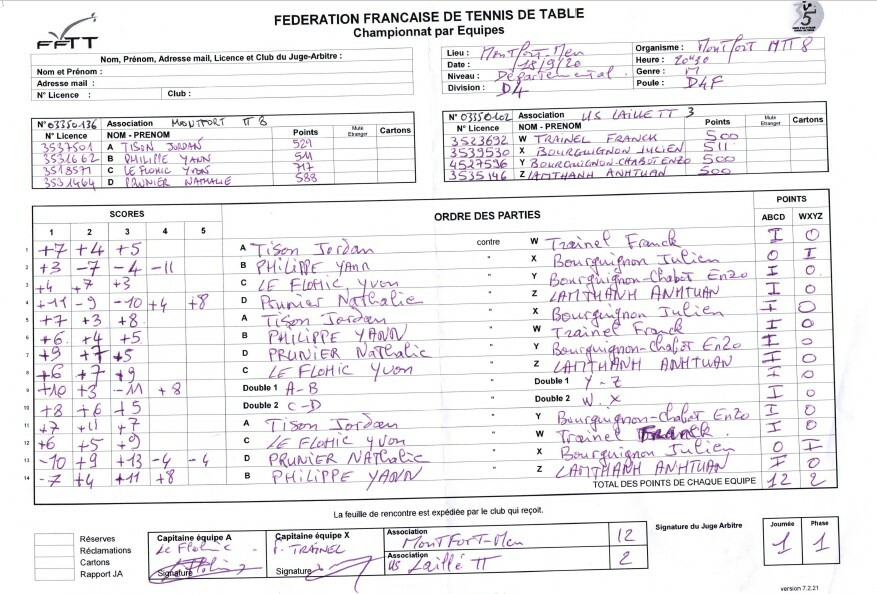 FEDERATION FRANCAISE DE TENNIS DE TABLE
Championnat par Equipes
FFTT
5
Nom, Prénom, Adresse mail, Licence et Club du Juge-Arbitre :
Nom et Prénom :
Adresse mail :
N° Licence : Club :
Lieu : Montfort-Meu Organisme : Montfort MTT 8
Date : 18/9/20 Heure : 20H30
Niveau : Départemental Genre : M
Division : D4 Poule : D4F
N° 03350136 Association MONTFORT TT 8
N° Licence NOM - PRENOM Points Mute Etranger Cartons
3537501 A TISON JORDAN 529
3531662 B PHILIPPE YANN 511
3518571 C LE FLOHIC YVON 717
3531464 D PRUNIER NATHALIE 588
N° 03350102 Association US LAILLE TT 3
N° Licence NOM - PRENOM Points Mute Etranger Cartons
3523692 W TRAINEL FRANCK 500
3539530 X BOURGUIGNON JULIEN 511
4527596 Y BOURGUIGNON-CHABOT ENZO 500
3535146 Z LAMTHANH ANHTUAN 500
SCORES ORDRE DES PARTIES POINTS
1 2 3 4 5 ABCD WXYZ
1 +7 +4 +5 A Tison Jordan contre W Trainel Franck I 0
2 +3 -7 -4 -11 B PHILIPPE YANN " X Bourguignon Julien 0 I
3 +4 +7 +3 C LE FLOHIC Yvon " Y Bourguignon-Chabot Enzo I 0
4 +11 -9 -10 +4 +8 D Prunier Nathalie " Z LAMTHANH ANHTUAN I 0
5 +7 +3 +8 A Tison Jordan " X Bourguignon Julien I 0
6 +6 +4 +5 B PHILIPPE YANN " W Trainel Franck I 0
7 +9 +7 +5 D PRUNIER Nathalie " Y Bourguignon-Chabot Enzo I 0
8 +6 +7 +9 C LE FLOHIC Yvon " Z LAMTHANH ANHTUAN I 0
9 +10 +3 -11 +8 Double 1 A-B " Double 1 Y-Z I 0
10 +8 +6 +5 Double 2 C-D " Double 2 W.X I 0
11 +7 +11 +7 A Tison Jordan " Y Bourguignon-Chabot Enzo I 0
12 +6 +5 +9 C LE FLOHIC YVON " W Trainel Franck I 0
13 -10 +9 +13 -4 -4 D PRUNIER Nathalie " X Bourguignon Julien 0 I
14 -7 +4 +11 +8 B PHILIPPE YANN " Z LAMTHANH ANHTUAN I 0
TOTAL DES POINTS DE CHAQUE EQUIPE 12 2
La feuille de rencontre est expédiée par le club qui reçoit.
Réserves
Réclamations
Cartons
Rapport JA
Capitaine équipe A
Le Flohic
Signature
Capitaine équipe X
F. TRAINEL
Signature
Association
MONTFORT-Meu 12
Association
US Laillé TT 2
Signature du Juge Arbitre
Journée Phase
1 1
version 7.2.21